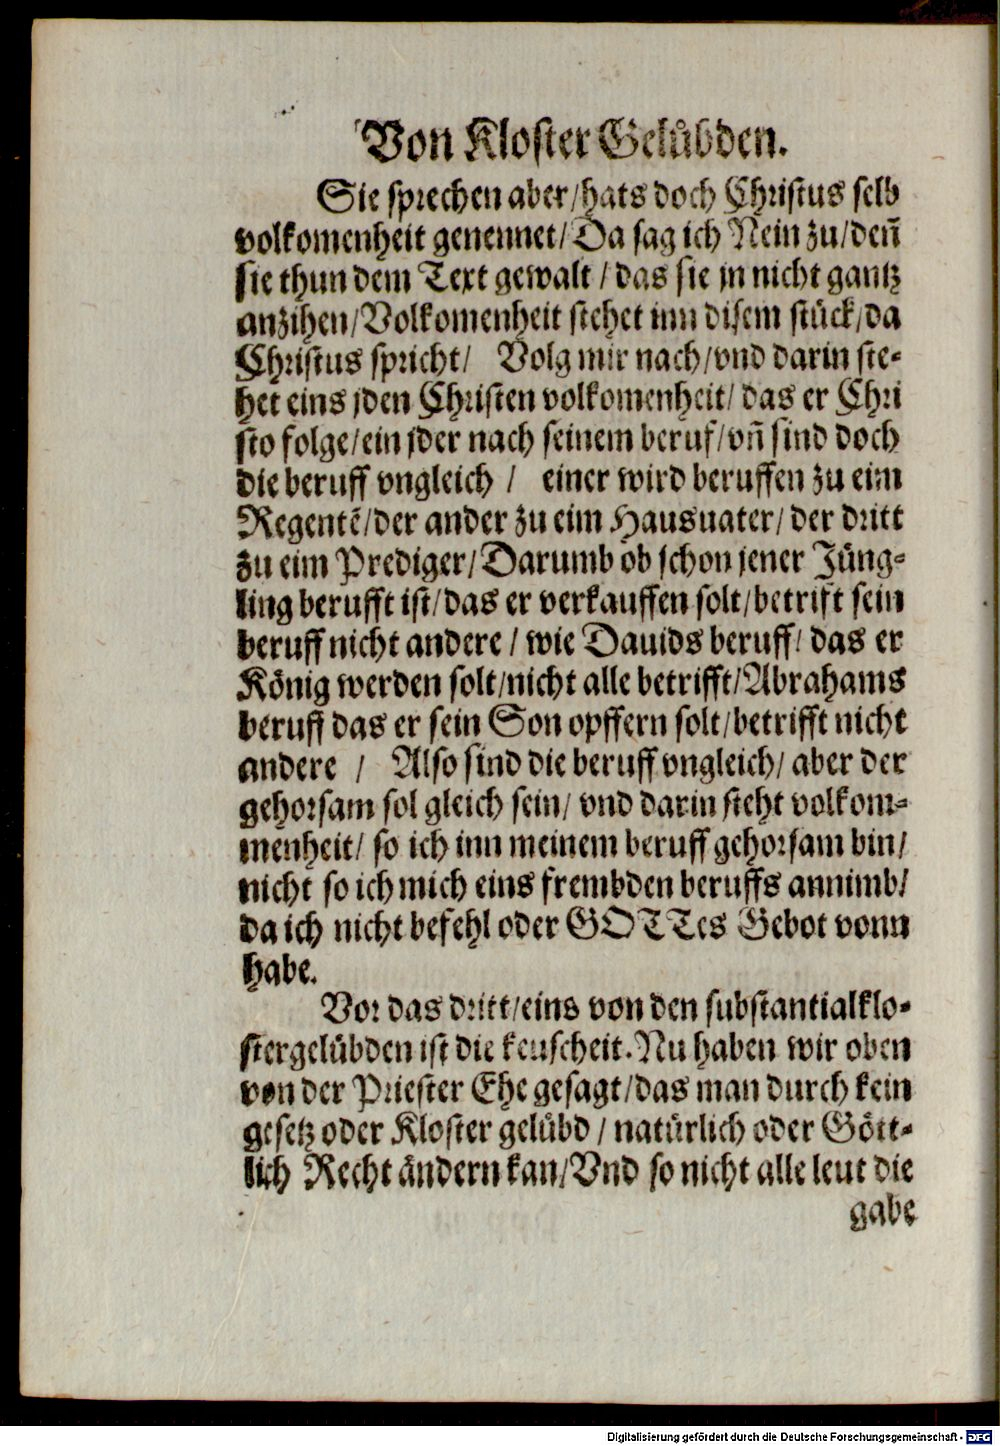 Von Kloster Gelübden.
Sie sprechen aber/hats doch Christus selb
volkomenheit genennet/Da sag ich Nein zu/den̄
sie thun dem Text gewalt/das sie jn nicht gantz
anzihen/Volkomenheit stehet inn disem stück/da
Christus spricht/ Volg mir nach/vnd darin ste-
het eins jden Christen volkomenheit/das er Chri
sto folge/ein jder nach seinem beruf/vn̄ sind doch
die beruff vngleich / einer wird beruffen zu eim
Regentē/der ander zu eim Hausuater/der dritt
zu eim Prediger/Darumb ob schon jener Jüng-
ling berufft ist/das er verkauffen solt/betrift sein
beruff nicht andere/wie Dauids beruff/das er
König werden solt/nicht alle betrifft/Abrahams
beruff das er sein Son opffern solt/betrifft nicht
andere / Also sind die beruff vngleich/aber der
gehorsam sol gleich sein/ vnd darin steht volkom-
menheit/ so ich inn meinem beruff gehorsam bin/
nicht so ich mich eins frembden beruffs annimb/
da ich nicht befehl oder GOTTes Gebot vonn
habe.
Vor das dritt/eins von den substantialklo-
stergelübden ist die keuscheit.Nu haben wir oben
von der Priester Ehe gesagt/das man durch kein
gesetz oder Kloster gelübd/natürlich oder Gött-
lich Recht ändern kan/Vnd so nicht alle leut die
gabe
Digitalisierung gefördert durch die Deutsche Forschungsgemeinschaft - DFG